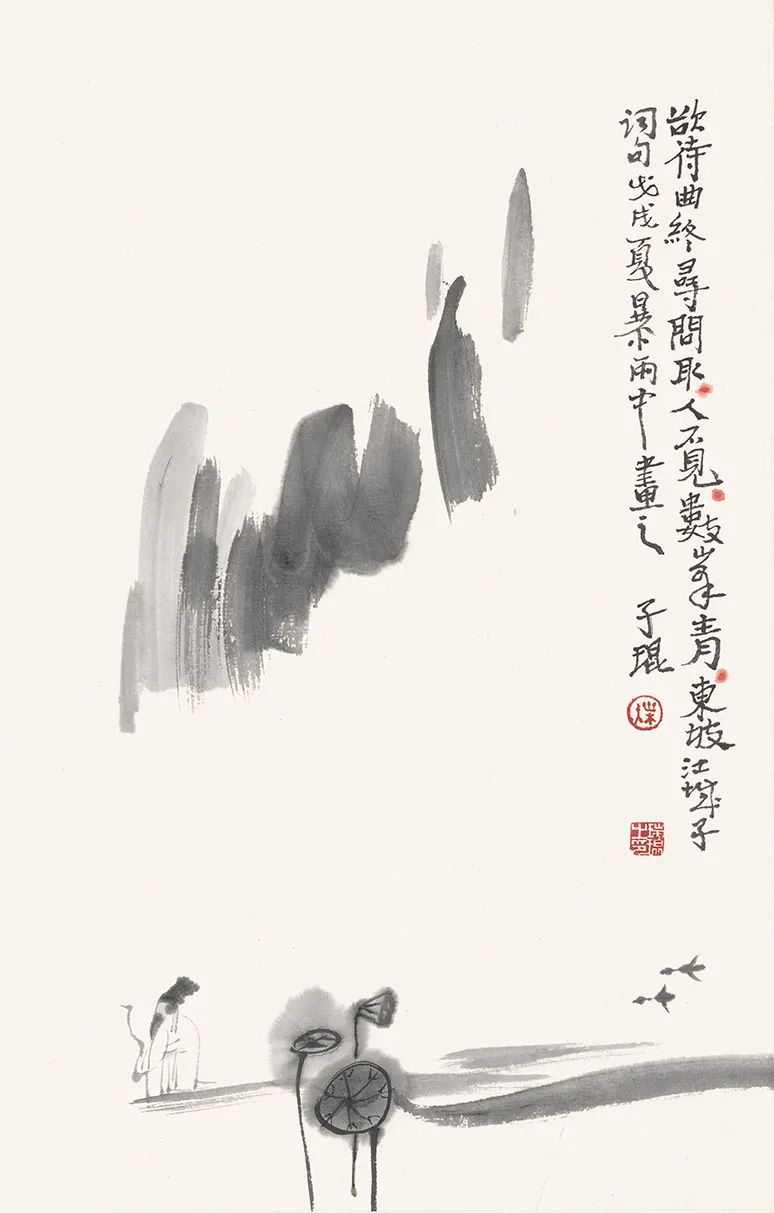 欲待曲終尋問取人不見數峯青東坡江城子
词句戊戌夏暴雨中畫之 子琨